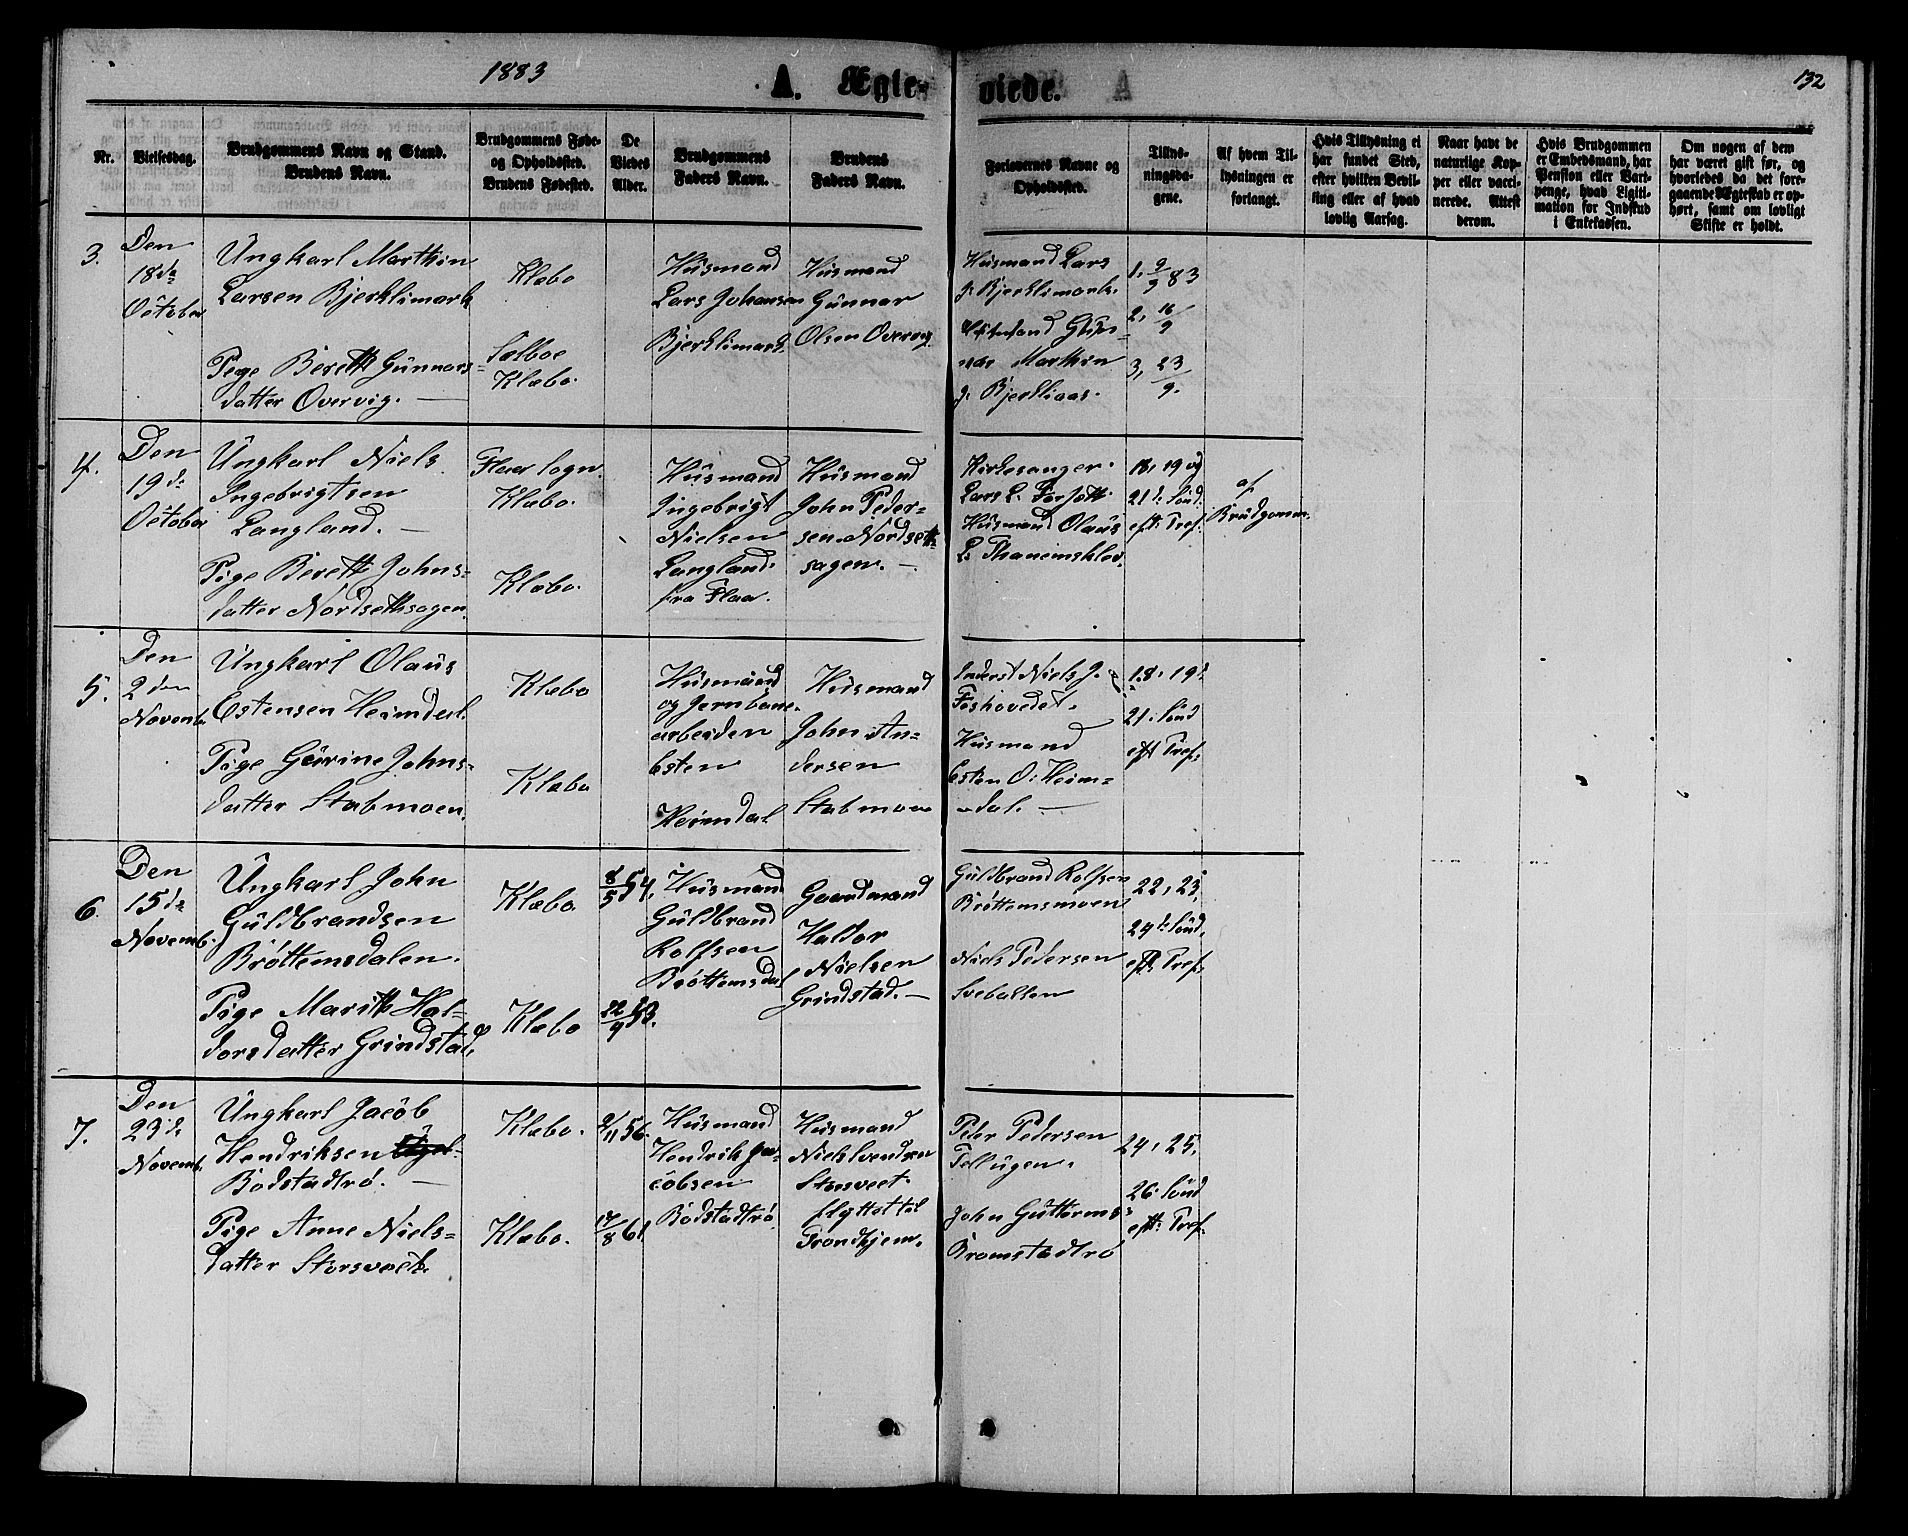 1883
A. Ægte-
viede.
132
Nr.
Vielsesdag.
Brudgommens Navn og Stand.
Brudens Navn.
Brudgommens Føde-
og Opholdssted.
Brudens Fødested.
De
Viedes
Alder.
Brudgommens
Faders Navn.
Brudens
Faders Navn.
Forlovernes Navne og
Opholdssted.
Tillys-
ningsda-
gene.
Af hvem Til-
lysningen er
forlangt.
Hvis Tillysning ei
har fundet Sted,
efter hvilken Bevil-
ling eller af hvad
lovlig Aarsag.
Naar havt de
naturlige Kop-
per eller vacci-
nerede. Attest
derom.
Hvis Brudgommen
er Embedsmand, har
Pension eller Vart-
penge, hvad Ligiti-
mation for Indskud
i Enkekassen.
Om nogen af dem
har været gift før, og
hvorledes da det fore-
gaaende Ægteskab er op-
hørt, samt om lovligt
Skifte er holdt.
3.
Den
18de
October
Ungkarl Marthin
Larsen Bjerklimark
Pige Berett Gunnars-
datter Overvig. —
Klæbo
Selboe
Klæbo.
Husmand
Lars Johansen
Bjerklimark.
Husmand
Gunnar
Olsen Overvig.
Husmand Lars
J. Bjerklimark.
Husmand Gun-
nar Marthin
J. Bjerkliaas.
1, 9/9 83
2, 16/9
3, 23/9.
4.
Den
19de
October
Ungkarl Niels
Ingebrigtsen
Langland. —
Pige Berett Johns-
datter Nordsethsagen.
Flaa Sogn.
Klæbo.
Klæbo.
Husmand
Ingebrigt
Nielsen
Langland.
fra Flaa.
Husmand
John Peder-
sen Nordseth-
sagen. —
Kirkesanger
Lars L. Forseth
Husmand Olaus
L. Thanemsklev.
18, 19 og
21de Sønd.
eft. Tref.
af
Brudgomm.
5.
Den
2den
Novemb.
Ungkarl Olaus
Estensen Heimdal.
Pige Gurine Johns-
datter Stabmoen.
Klæbo
Klæbo
Husmand
og Jernbane-
arbeiden
Esten
Heimdal
Husmand
John An-
dersen
Stabmoen
Inderst Niels J.
Foshovedet.
Husmand
Esten O. Heim-
dal. —
18, 19,
21. Sønd
eft Tref.
6.
Den
15de
Novemb.
Ungkarl John
Guldbrandsen
Brøttemsdalen.
Pige Marith Hal-
dorsdatter Grindstad.
Klæbo.
Klæbo
8/5 54.
22/9 53.
Husmand
Guldbrand
Rolfsen
Brøttemsdal
Gaardmand
Haldor
Nielsen
Grindstad. —
Guldbrand Rolfsen
Brøttemsmoen
Niels Pedersen
Sveballen
22, 23,
24de Sønd.
eft. Tref.
7.
Den
23de
Novemb.
Ungkarl Jacob
Hendriksen
Bodstadtrø. —
Pige Anne Niels-
datter Storsveet.
Klæbo.
Klæbo.
2/11 56.
17/8 61
Husmand
Hendrik Ja-
cobsen
Bodstadtrø
Husmand
Niels Svendsen
Storsveet
flyttet til
Trondhjem.
Peter Pedersen
Tellugen.
John Guttorms
Bromstadtrø
24, 25,
26. Sønd
eft. Tref.